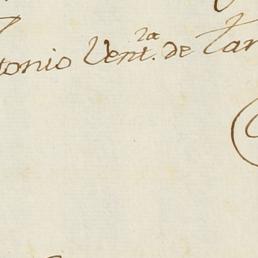 tonio Vent.ra de Tar